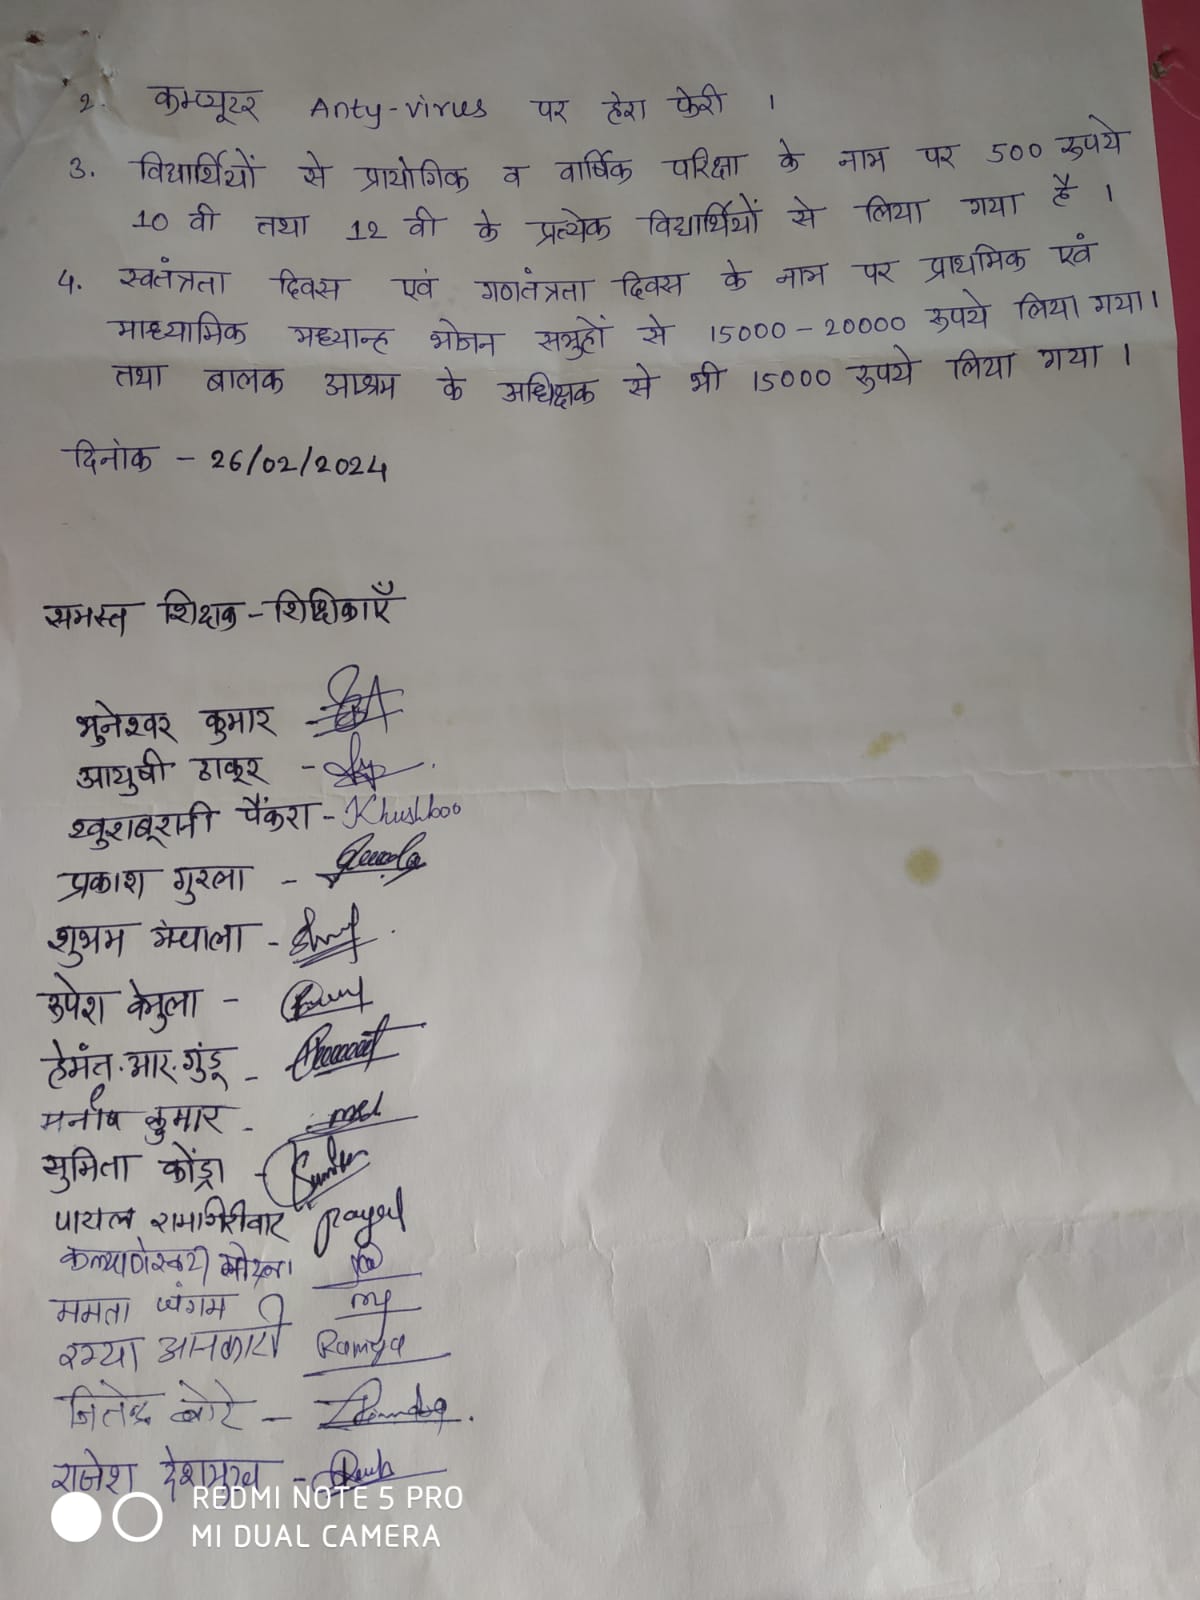 2. कम्प्यूटर Anty-virus पर हेरा फेरी ।
3. विद्यार्थियों से प्रायोगिक व वार्षिक परिक्षा के नाम पर 500 रुपये
10 वी तथा 12 वी के प्रत्येक विद्यार्थियों से लिया गया है ।
4. स्वतंत्रता दिवस एवं गणतंत्रता दिवस के नाम पर प्राथमिक एवं
माध्यामिक मध्यान्ह भोजन समुहों से 15000-20000 रुपये लिया गया।
तथा बालक आश्रम के अधिक्षक से भी 15000 रुपये लिया गया ।
दिनांक - 26/02/2024
समस्त शिक्षक-शिक्षिकाएँ
भुनेश्वर कुमार -
आयुषी ठाकुर -
खुशबूरानी पैंकरा - Khushboo
प्रकाश गुरला -
शुभम मेचाला -
रुपेश केमुला -
हेमंत.आर.गुंडू -
मनीष कुमार -
सुमिता कोंड्रा -
पायल रामगिरीवार payal
कल्याणेस्वरी
ममता जंगम
रम्या आनकारी Ramya
जितेन्द्र बोरे -
राजेश देशमुख -
REDMI NOTE 5 PRO
MI DUAL CAMERA